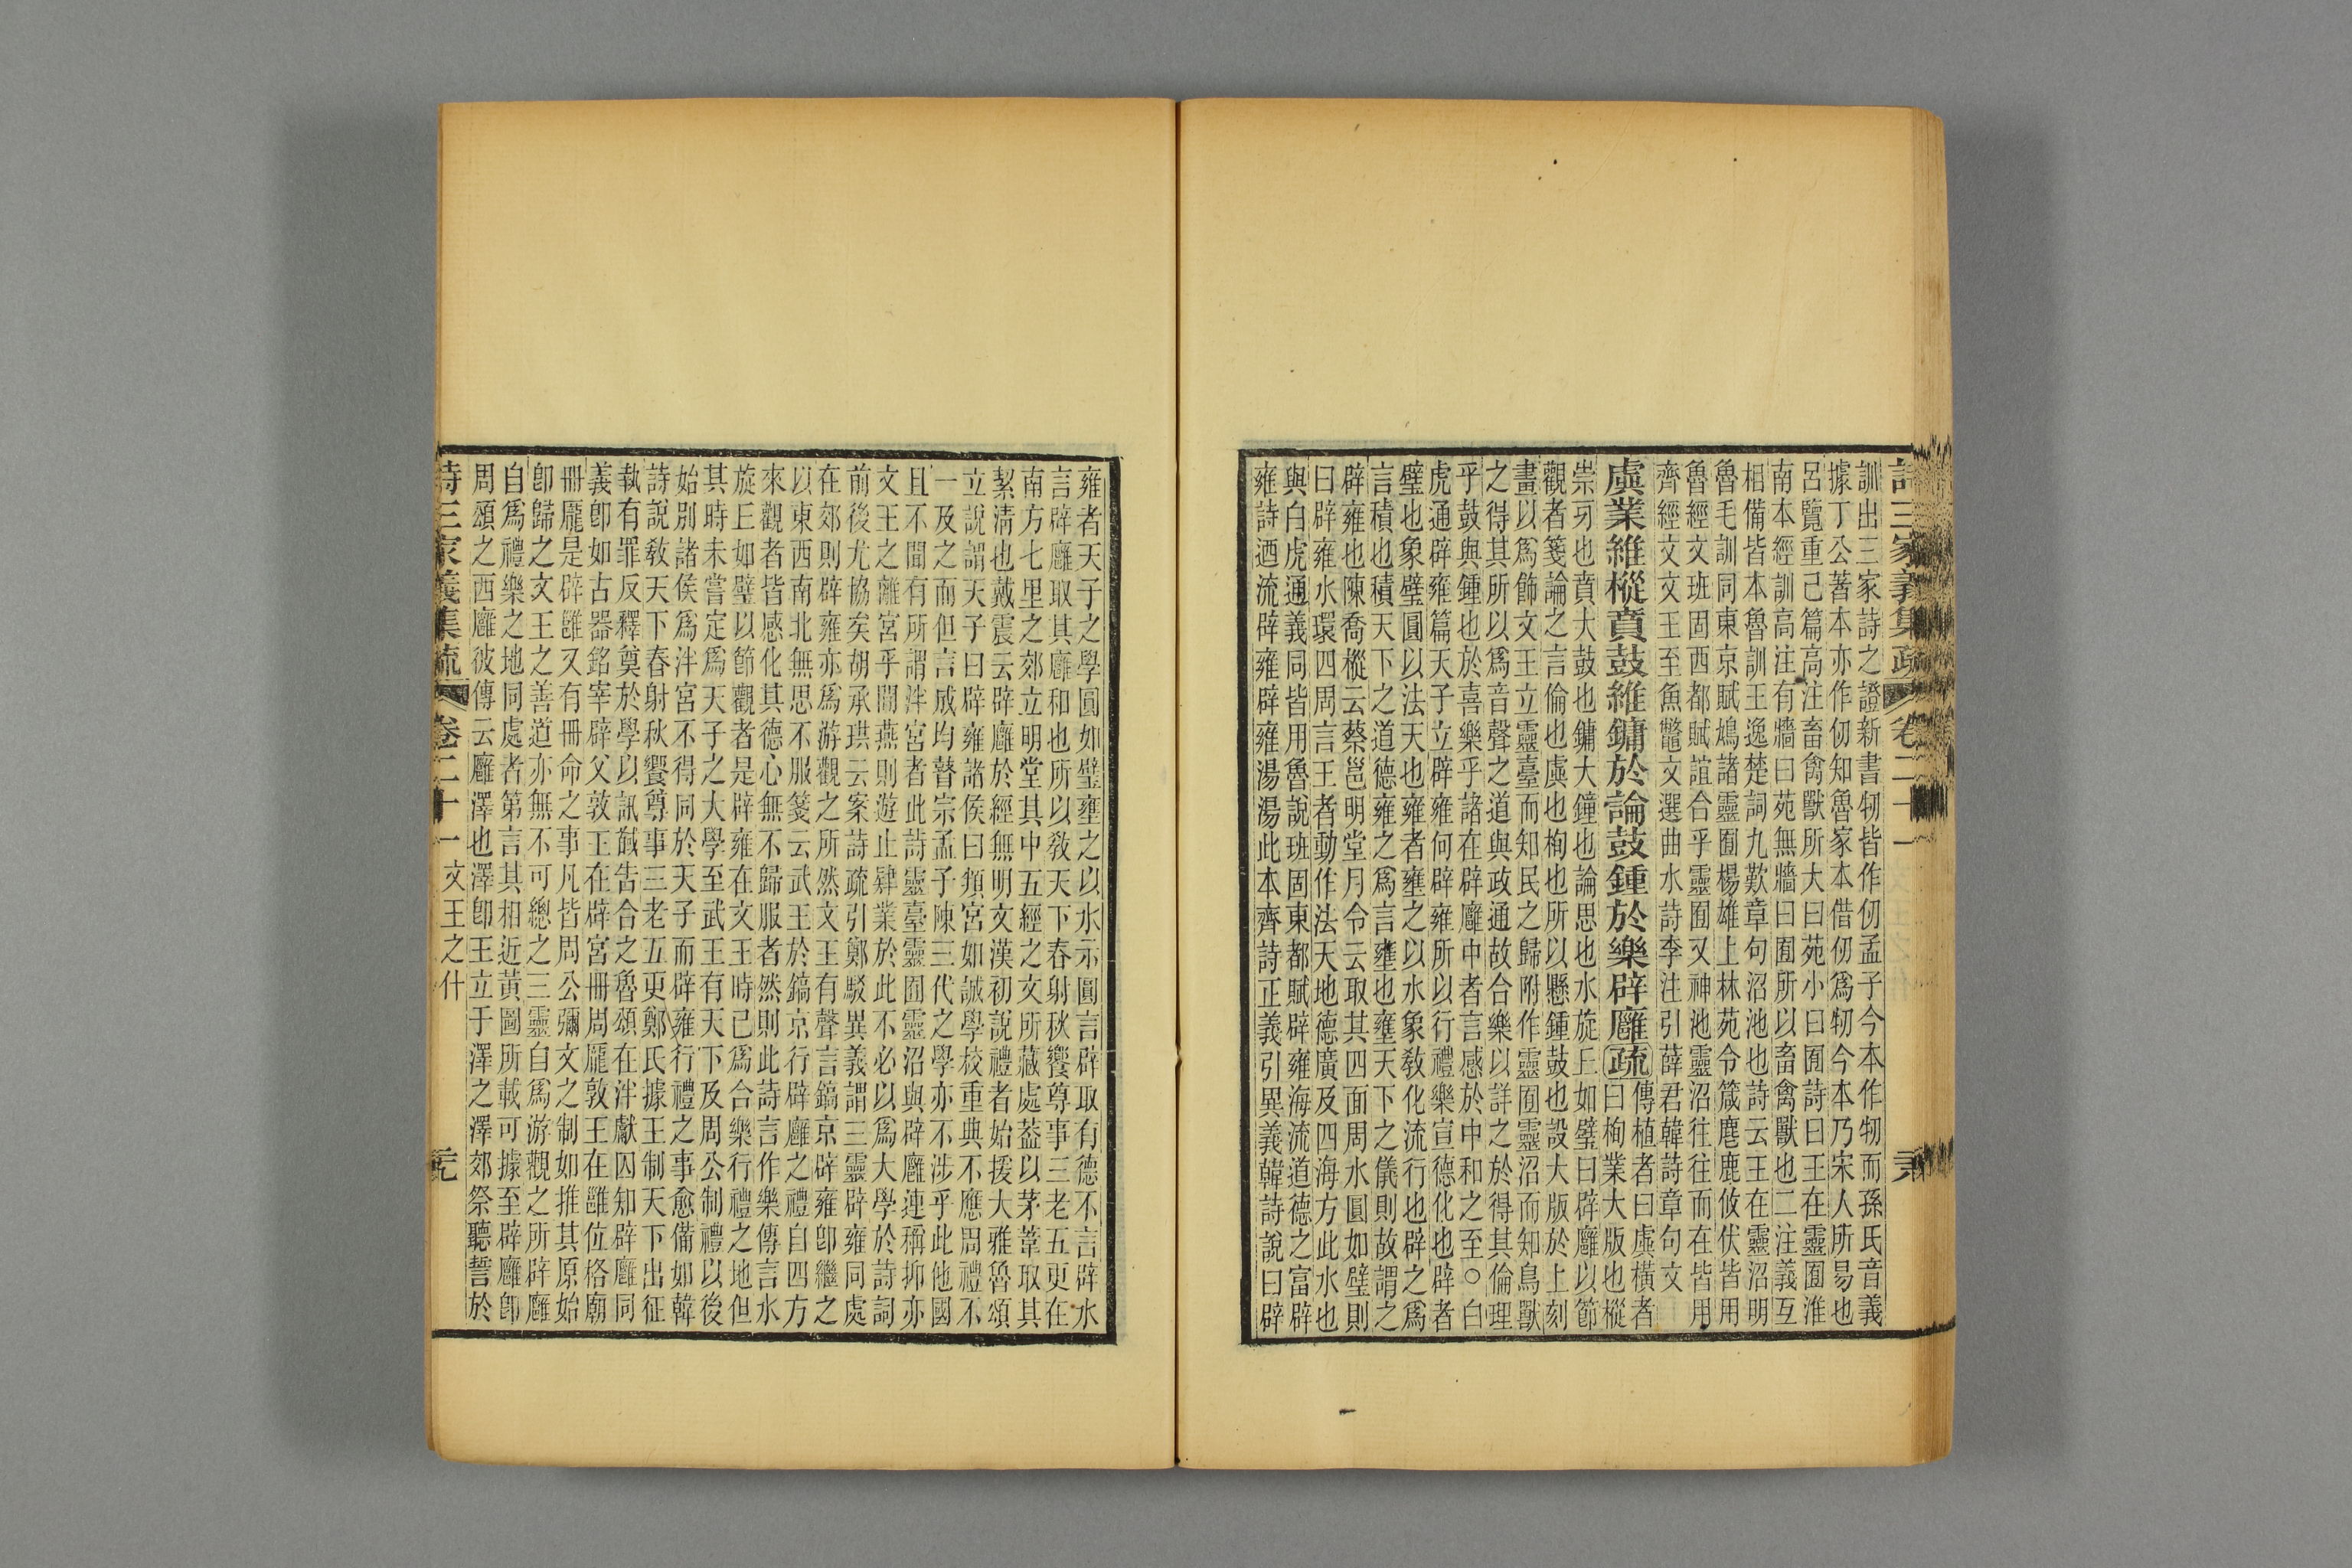 詩三家義集疏 卷二十一 二六
訓出三家詩之證新書牣皆作仞孟子今本作牣而孫氏音義
據丁公著本亦作仞知魯家本借仞爲牣今本乃宋人所易也
呂覽重己篇高注畜禽獸所大曰苑小曰囿詩曰王在靈囿淮
南本經訓高注有牆曰苑無牆曰囿所以畜禽獸也二注義互
相備皆本魯訓王逸楚詞九歎章句沼池也詩云王在靈沼明
魯毛訓同東京賦鳩諸靈囿楊雄上林苑令箴麀鹿攸伏皆用
魯經文班固西都賦誼合乎靈囿又神池靈沼往往而在皆用
齊經文文王至魚鼈文選曲水詩李注引薛君韓詩章句文
虡業維樅賁鼓維鏞於論鼓鍾於樂辟廱疏
傳植者曰虡橫者
曰栒業大版也樅
崇牙也賁大鼓也鏞大鐘也論思也水旋丘如璧曰辟廱以節
觀者箋論之言倫也虡也栒也所以懸鍾鼓也設大版於上刻
畫以爲飾文王立靈臺而知民之歸附作靈囿靈沼而知鳥獸
之得其所以爲音聲之道與政通故合樂以詳之於得其倫理
乎鼓與鍾也於喜樂乎諸在辟廱中者言感於中和之至○白
虎通辟雍篇天子立辟雍何辟雍所以行禮樂宣德化也辟者
璧也象璧圓以法天也雍者壅之以水象敎化流行也辟之爲
言積也積天下之道德雍之爲言壅也壅天下之儀則故謂之
辟雍也陳喬樅云蔡邕明堂月令云取其四面周水圓如璧則
曰辟雍水環四周言王者動作法天地德廣及四海方此水也
與白虎通義同皆用魯說班固東都賦辟雍海流道德之富辟
雍詩迺流辟雍辟雍湯湯此本齊詩正義引異義韓詩說曰辟
雍者天子之學圓如璧壅之以水示圓言辟取有德不言辟水
言辟廱取其廱和也所以敎天下春射秋饗尊事三老五更在
南方七里之郊立明堂其中五經之文所藏處葢以茅葦取其
絜淸也戴震云辟廱於經無明文漢初說禮者始援大雅魯頌
立說謂天子曰辟雍諸侯曰頖宮如誠學校重典不應周禮不
一及之而但言成均瞽宗孟子陳三代之學亦不涉乎此他國
且不聞有所謂泮宮者此詩靈臺靈囿靈沼與辟廱連稱抑亦
文王之離宮乎閒燕則遊止肄業於此不必以爲大學於詩詞
前後尤協矣胡承珙云案詩疏引鄭駁異義謂三靈辟雍同處
在郊則辟雍亦爲游觀之所然文王有聲言鎬京辟雍卽繼之
以東西南北無思不服箋云武王於鎬京行辟廱之禮自四方
來觀者皆感化其德心無不歸服者然則此詩言作樂傳言水
旋丘如璧以節觀者是辟雍在文王時已爲合樂行禮之地但
其時未嘗定爲天子之大學至武王有天下及周公制禮以後
始別諸侯爲泮宮不得同於天子而辟雍行禮之事愈備如韓
詩說敎天下春射秋饗尊事三老五更鄭氏據王制天下出征
執有罪反釋奠於學以訊馘告合之魯頌在泮獻囚知辟廱同
義卽如古器銘宰辟父敦王在辟宮冊周厖敦王在雝位格廟
冊厖是辟雝又有冊命之事凡皆周公彌文之制如推其原始
卽歸之文王之善道亦無不可總之三靈自爲游觀之所辟廱
自爲禮樂之地同處者第言其相近黃圖所載可據至辟廱卽
周頌之西廱彼傳云廱澤也澤卽王立于澤之澤郊祭聽誓於
詩三家義集疏 卷二十一 文王之什 二九